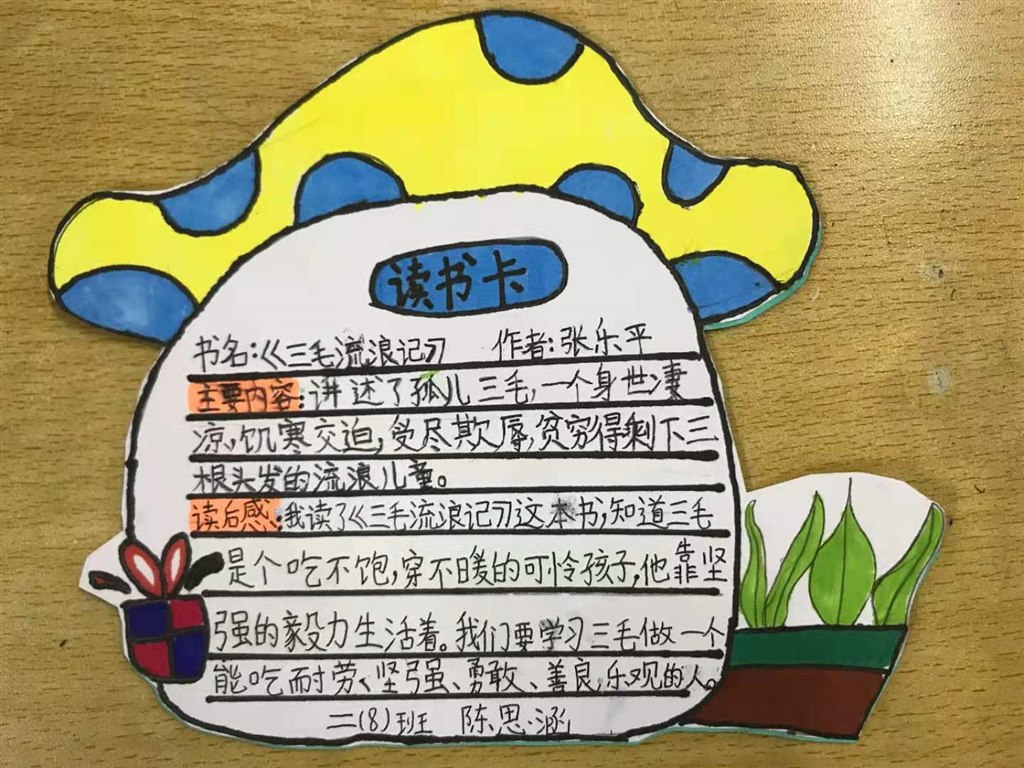 读书卡
书名:《三毛流浪记》 作者:张乐平
主要内容:讲述了孤儿三毛,一个身世凄
凉,饥寒交迫,受尽欺辱,贫穷得剩下三
根头发的流浪儿童。
读后感:我读了《三毛流浪记》这本书,知道三毛
是个吃不饱,穿不暖的可怜孩子,他靠坚
强的毅力生活着。我们要学习三毛做一个
能吃耐劳、坚强、勇敢、善良,乐观的人。
二(8)班 陈思涵